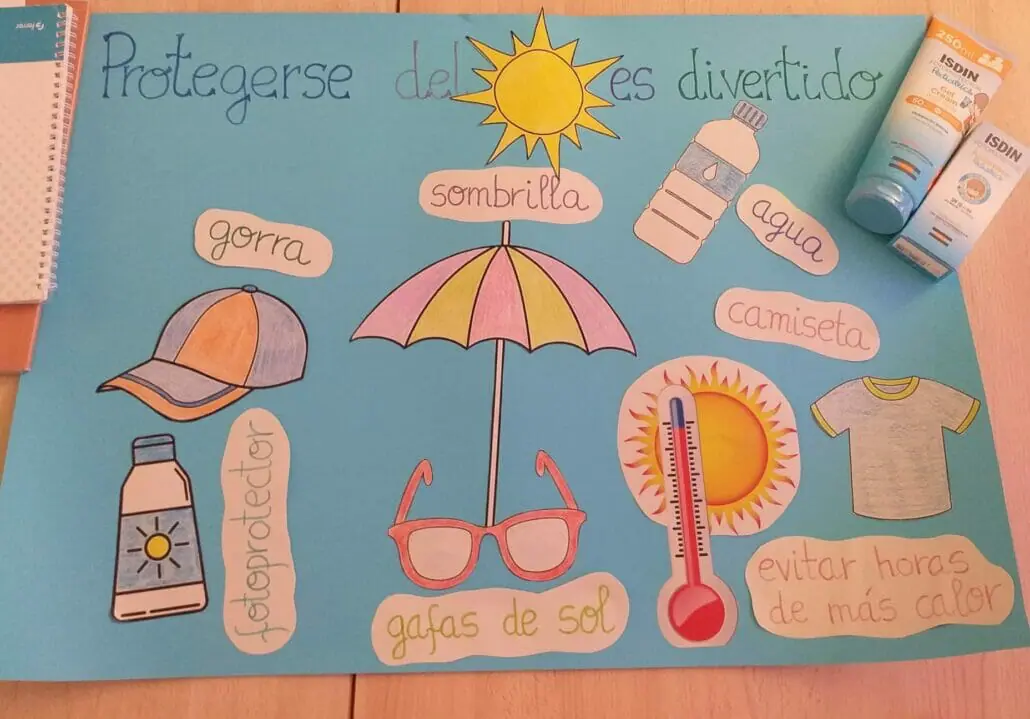 Protegerse del es divertido
sombrilla
gorra
agua
camiseta
fotoprotector
gafas de sol
evitar horas
de más calor
250ml
ISDIN
Pediatrics
Gel
Cream
50
ISDIN
Ferrer